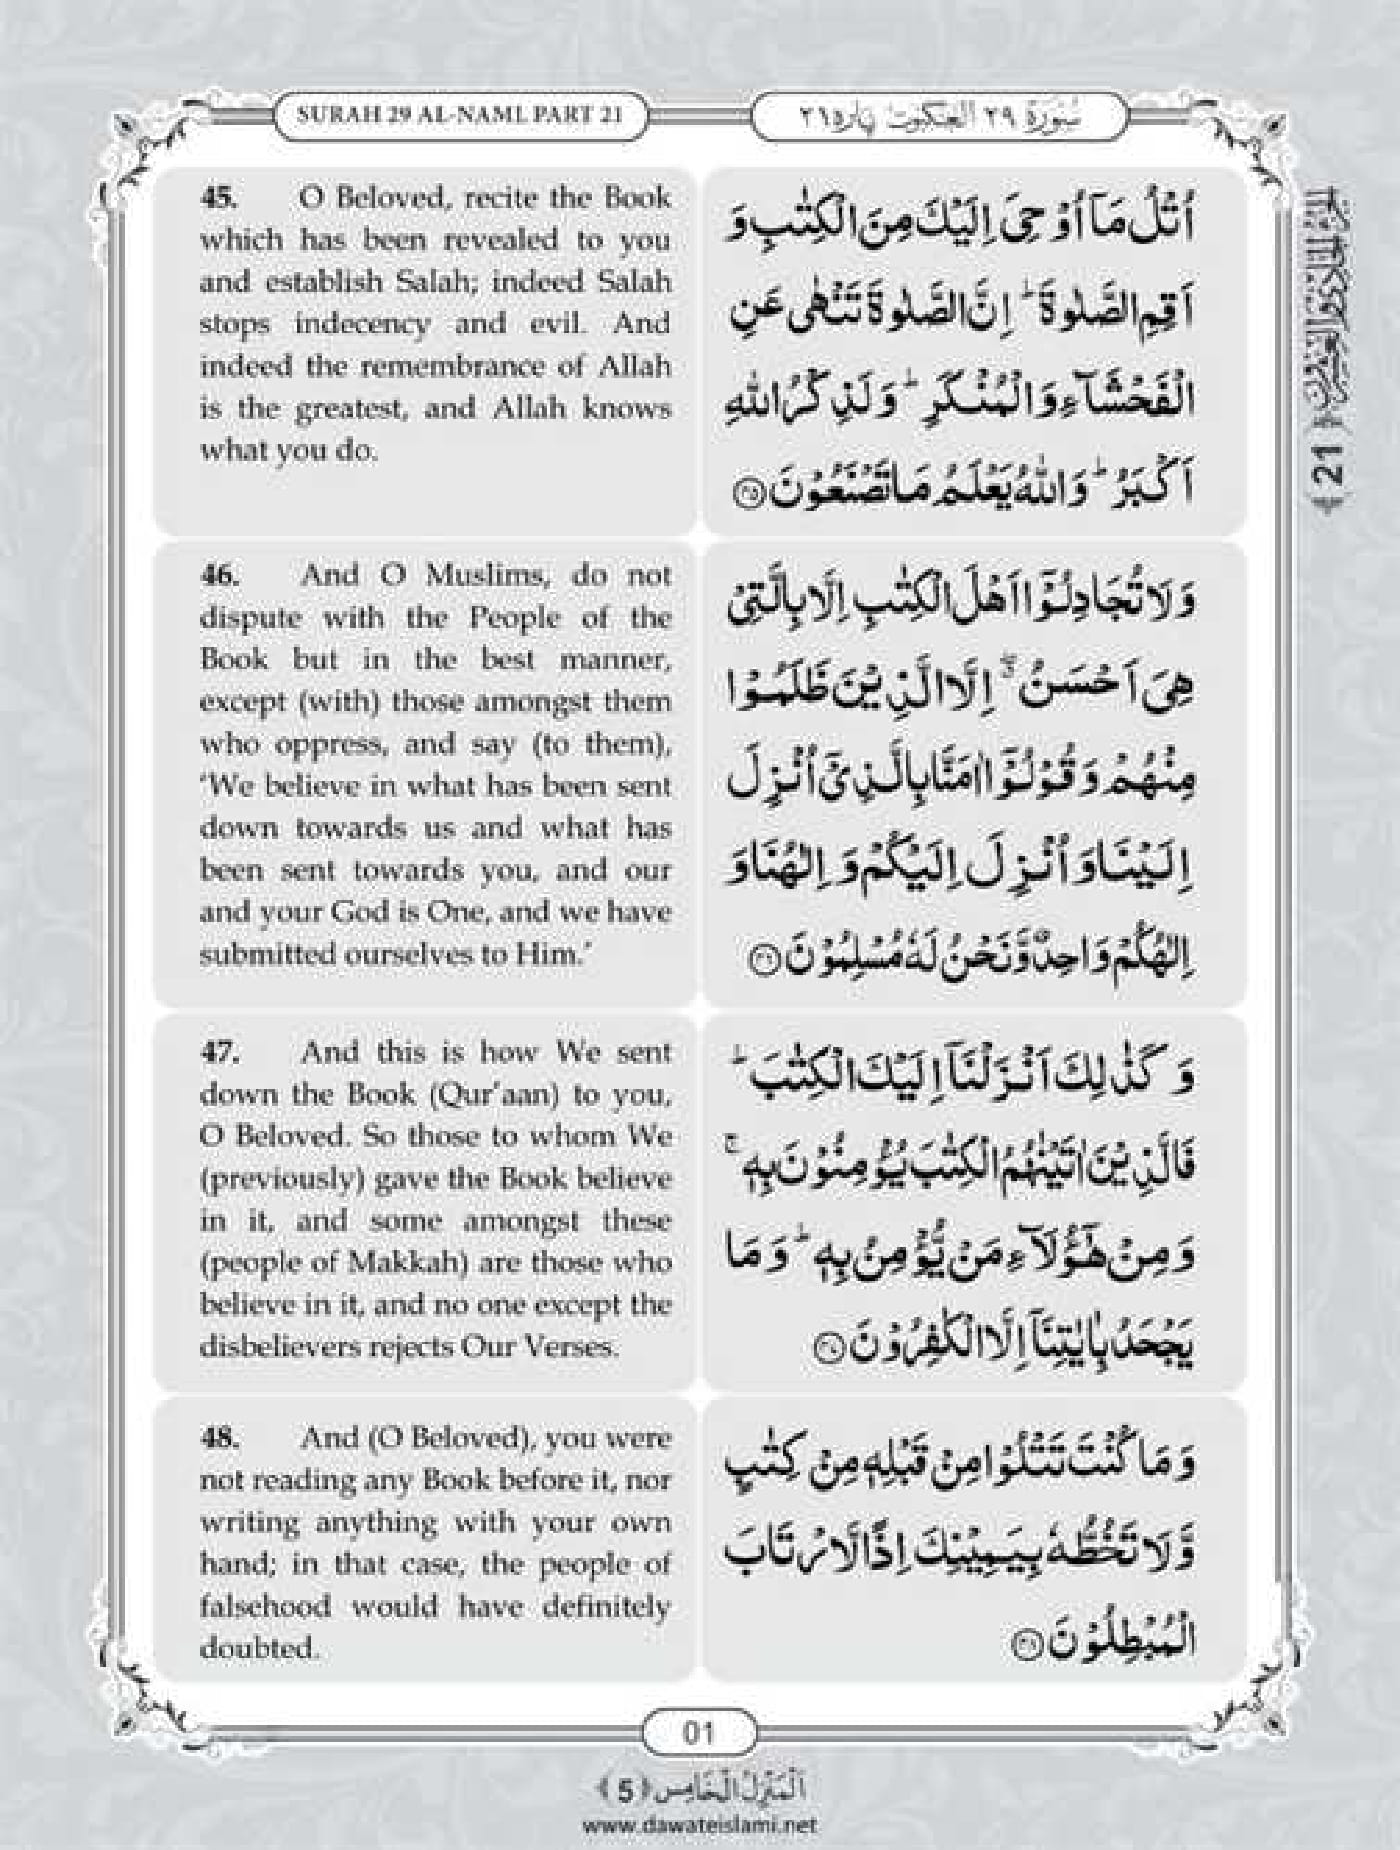 SURAH 29 AL-NAML PART 21
سُوْرَة ٢٩ العنکبوت پارہ ٢١
45. O Beloved, recite the Book
which has been revealed to you
and establish Salah; indeed Salah
stops indecency and evil. And
indeed the remembrance of Allah
is the greatest, and Allah knows
what you do.
اُتْلُ مَاۤ اُوْحِیَ اِلَیْكَ مِنَ الْكِتٰبِ وَ
اَقِمِ الصَّلٰوةَ ؕ اِنَّ الصَّلٰوةَ تَنْهٰى عَنِ
الْفَحْشَآءِ وَ الْمُنْكَرِ ؕ وَ لَذِكْرُ اللّٰهِ
اَكْبَرُ ؕ وَ اللّٰهُ یَعْلَمُ مَا تَصْنَعُوْنَ ﴿۴۵﴾
46. And O Muslims, do not
dispute with the People of the
Book but in the best manner,
except (with) those amongst them
who oppress, and say (to them),
‘We believe in what has been sent
down towards us and what has
been sent towards you, and our
and your God is One, and we have
submitted ourselves to Him.’
وَ لَا تُجَادِلُوْۤا اَهْلَ الْكِتٰبِ اِلَّا بِالَّتِیْ
هِیَ اَحْسَنُ ۖۗ اِلَّا الَّذِیْنَ ظَلَمُوْا
مِنْهُمْ وَ قُوْلُوْۤا اٰمَنَّا بِالَّذِیْۤ اُنْزِلَ
اِلَیْنَا وَ اُنْزِلَ اِلَیْكُمْ وَ اِلٰهُنَا وَ
اِلٰهُكُمْ وَاحِدٌ وَّ نَحْنُ لَهٗ مُسْلِمُوْنَ ﴿۴۶﴾
47. And this is how We sent
down the Book (Qur’aan) to you,
O Beloved. So those to whom We
(previously) gave the Book believe
in it, and some amongst these
(people of Makkah) are those who
believe in it, and no one except the
disbelievers rejects Our Verses.
وَ كَذٰلِكَ اَنْزَلْنَاۤ اِلَیْكَ الْكِتٰبَ ؕ
فَالَّذِیْنَ اٰتَیْنٰهُمُ الْكِتٰبَ یُؤْمِنُوْنَ بِهٖ ۚ
وَ مِنْ هٰۤؤُلَآءِ مَنْ یُّؤْمِنُ بِهٖ ؕ وَ مَا
یَجْحَدُ بِاٰیٰتِنَاۤ اِلَّا الْكٰفِرُوْنَ ﴿۴۷﴾
48. And (O Beloved), you were
not reading any Book before it, nor
writing anything with your own
hand; in that case, the people of
falsehood would have definitely
doubted.
وَ مَا كُنْتَ تَتْلُوْا مِنْ قَبْلِهٖ مِنْ كِتٰبٍ
وَّ لَا تَخُطُّهٗ بِیَمِیْنِكَ اِذًا لَّارْتَابَ
الْمُبْطِلُوْنَ ﴿۴۸﴾
الجزء الحادی والعشرون ﴿21﴾
01
اَلْمَنْزِلُ الْخَامِس ﴿5﴾
www.dawateislami.net